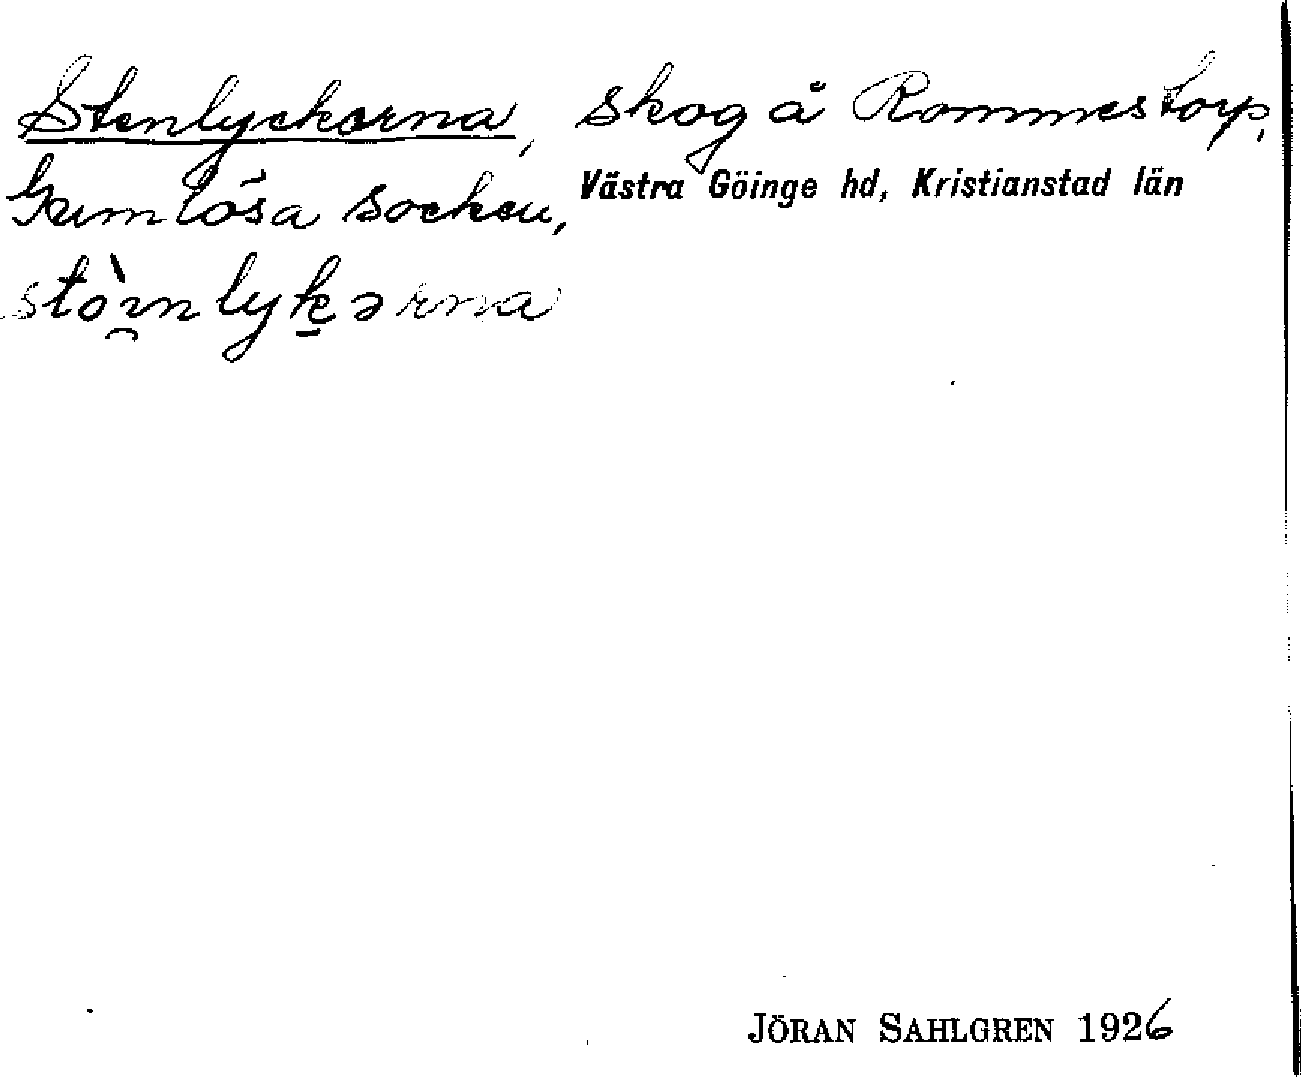 Stenlyckorna, skog å Rommestorp,
Gumlösa socken, Västra Göinge hd, Kristianstad län
JÖRAN SAHLGREN 1926